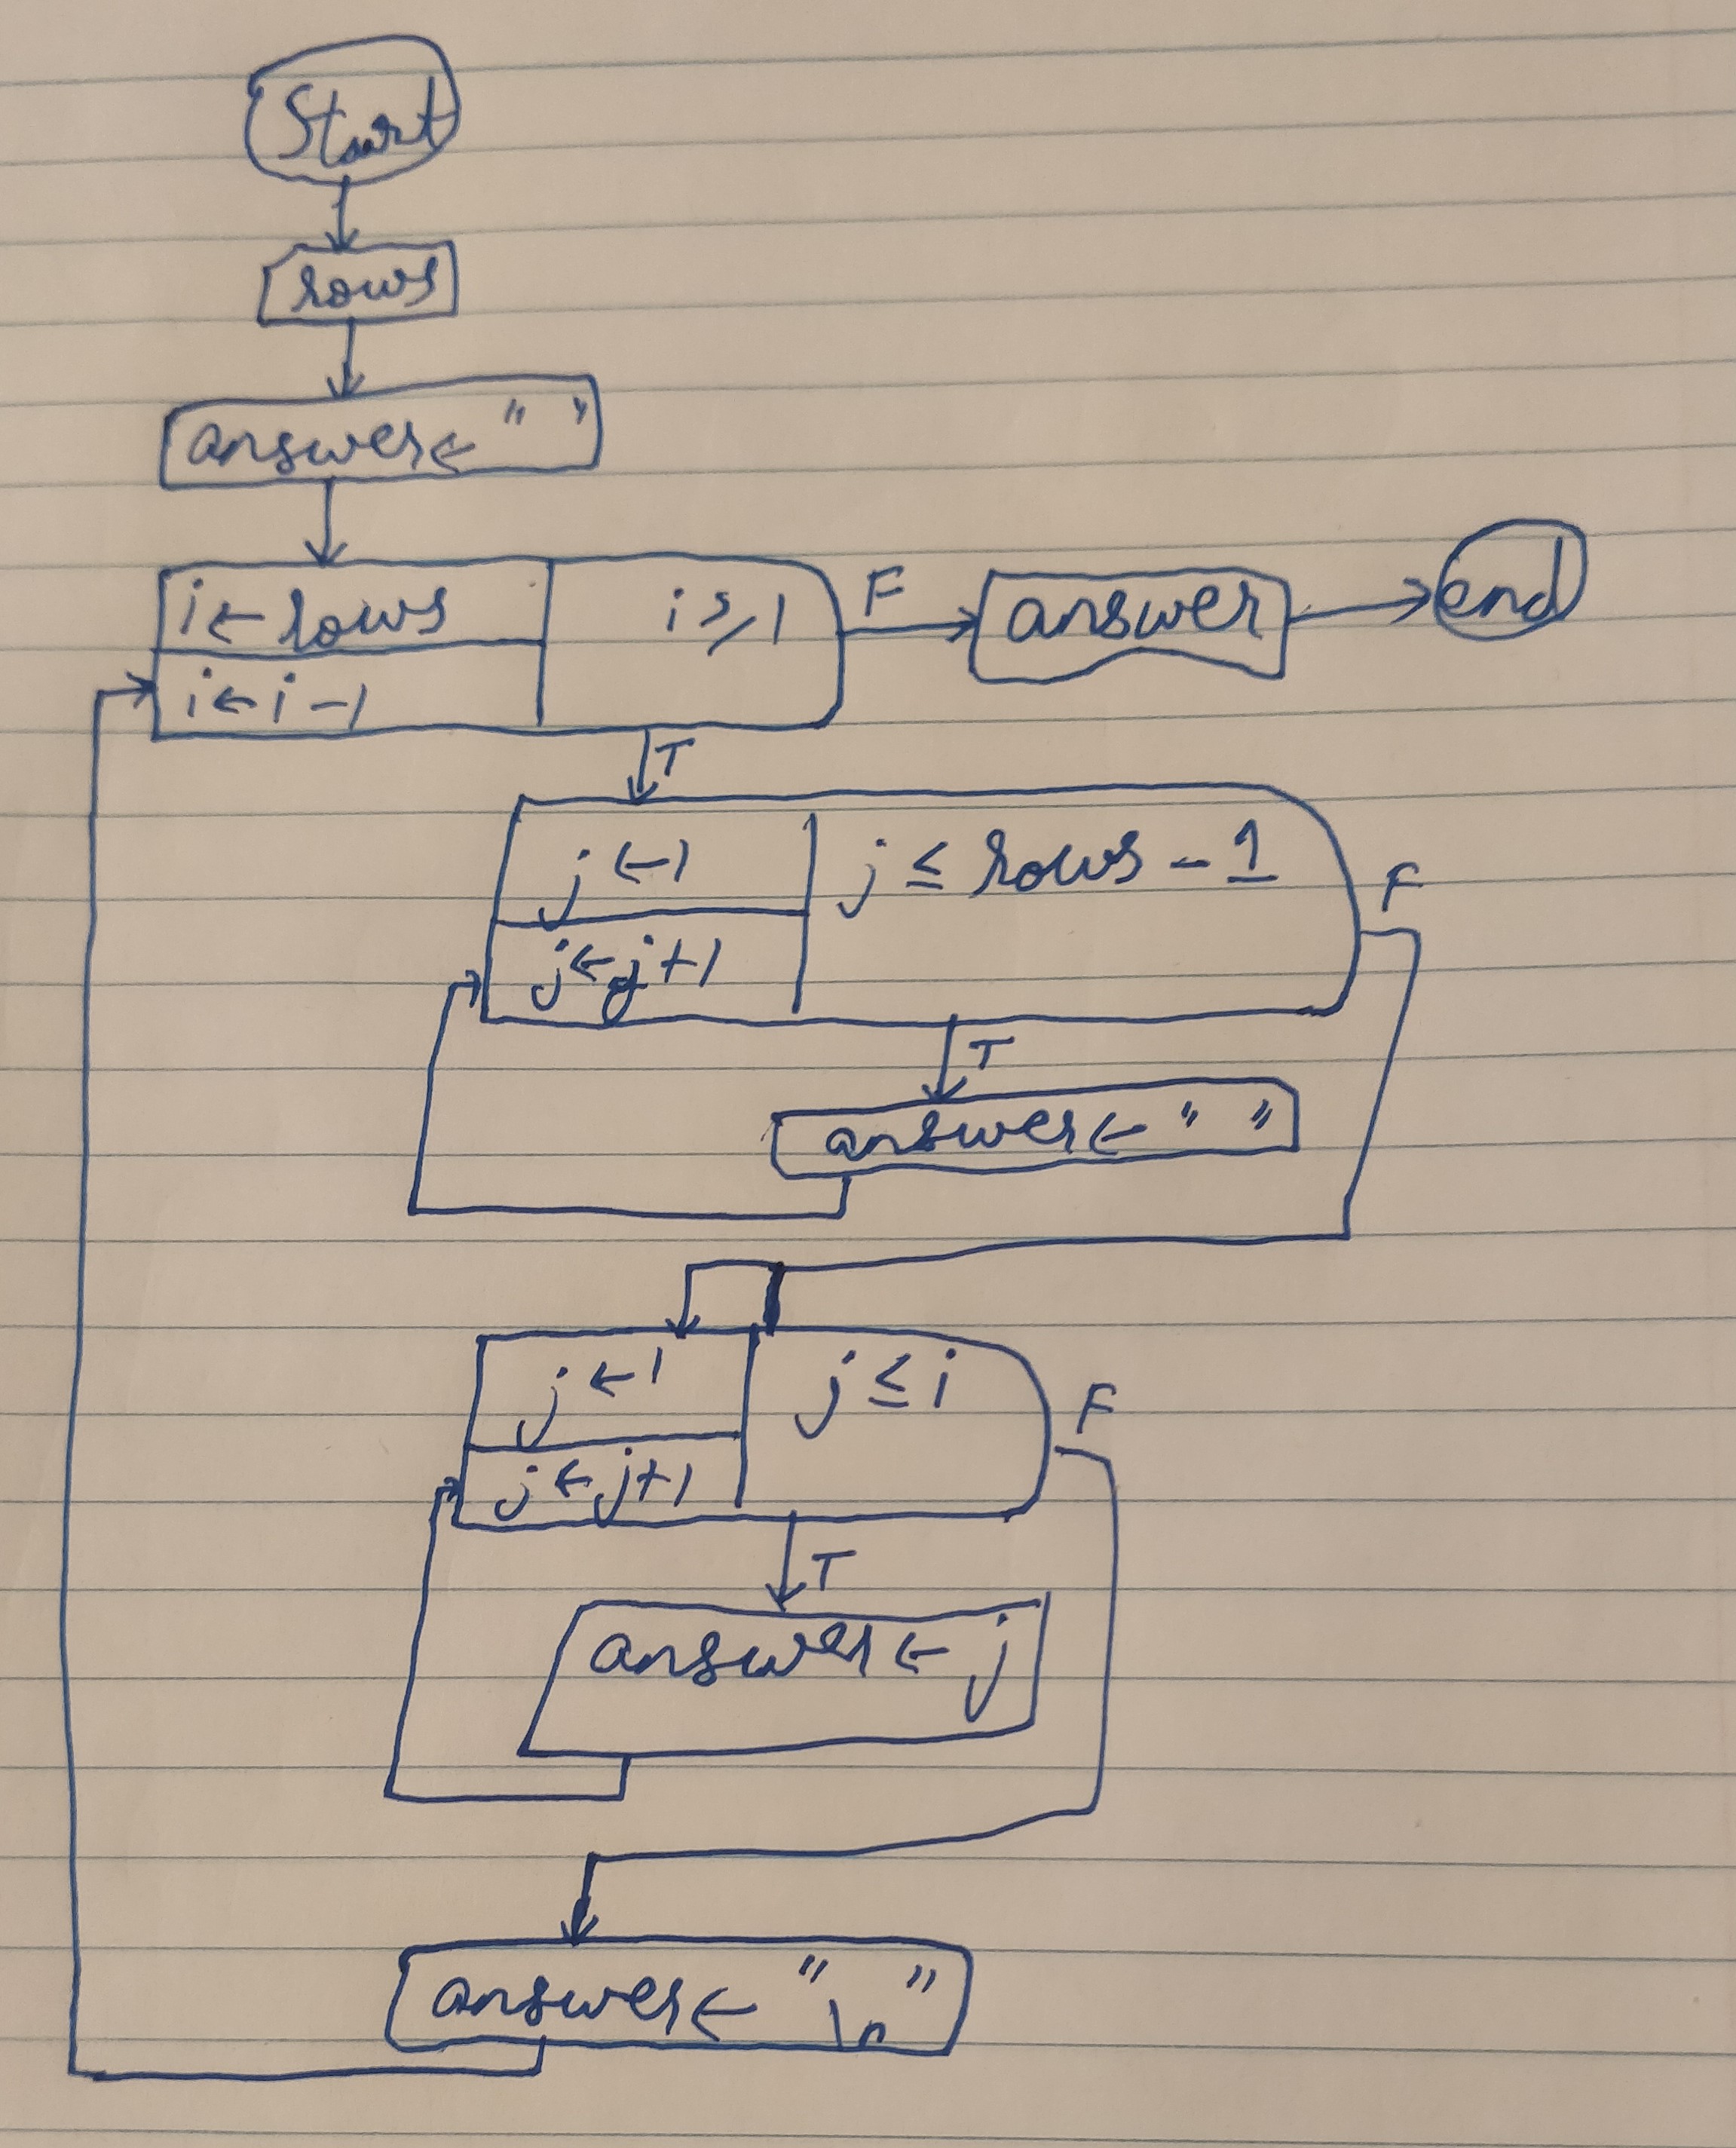 Start
rows
answer ← " "
i ← rows
i ≥ 1
F
answer
end
i ← i - 1
T
j ← 1
j ≤ rows - 1
F
j ← j + 1
T
answer ← " "
j ← 1
j ≤ i
F
j ← j + 1
T
answer ← j
answer ← "\n"